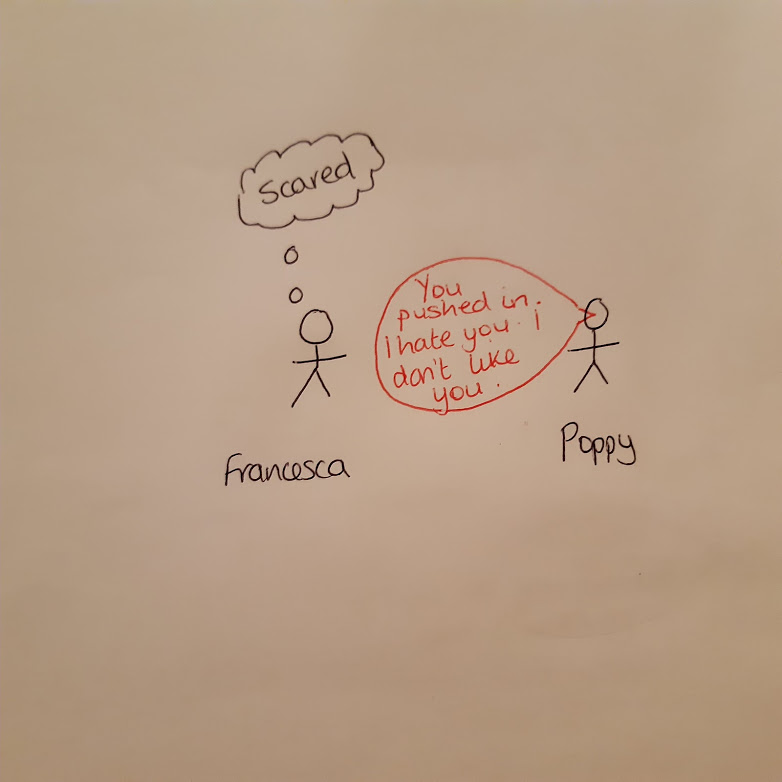 Scared
You
pushed in.
i hate you. i
don't like
you.
Francesca
Poppy